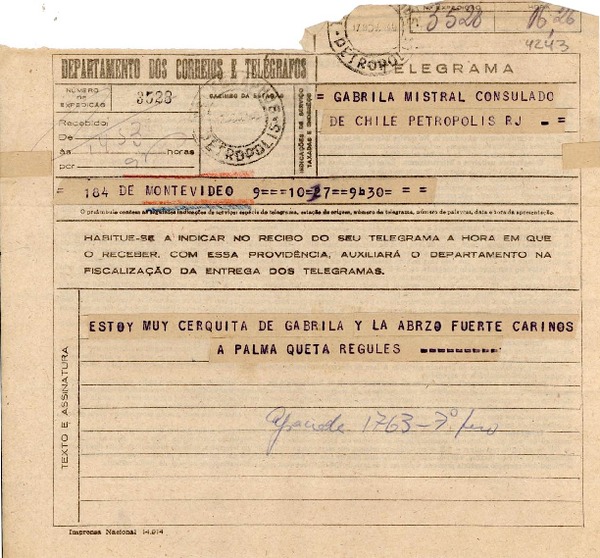 17 NOV
PETROPOLIS
3528
16,26
4243
DEPARTAMENTO DOS CORREIOS E TELÉGRAFOS
TELEGRAMA
NÚMERO DE EXPEDIÇÃO
3528
CARIMBO DA ESTAÇÃO
PETROPOLIS
INDICAÇÕES DE SERVIÇO TAXADAS E ENDEREÇO
Recebido:
De
às horas
por
= GABRILA MISTRAL CONSULADO
DE CHILE PETROPOLIS RJ - =
= 184 DE MONTEVIDEO 9===10=27==9h30= = =
O préâmbulo contém as seguintes indicações de serviço: espécie do telegrama, estação de origem, número do telegrama, número de palavras, data e hora da apresentação.
HABITUE-SE A INDICAR NO RECIBO DO SEU TELEGRAMA A HORA EM QUE
O RECEBER. COM ESSA PROVIDÊNCIA, AUXILIARÁ O DEPARTAMENTO NA
FISCALIZAÇÃO DA ENTREGA DOS TELEGRAMAS.
TEXTO E ASSINATURA
ESTOY MUY CERQUITA DE GABRILA Y LA ABRZO FUERTE CARINOS
A PALMA QUETA REGULES =========
1763-7º
Imprensa Nacional 14.914